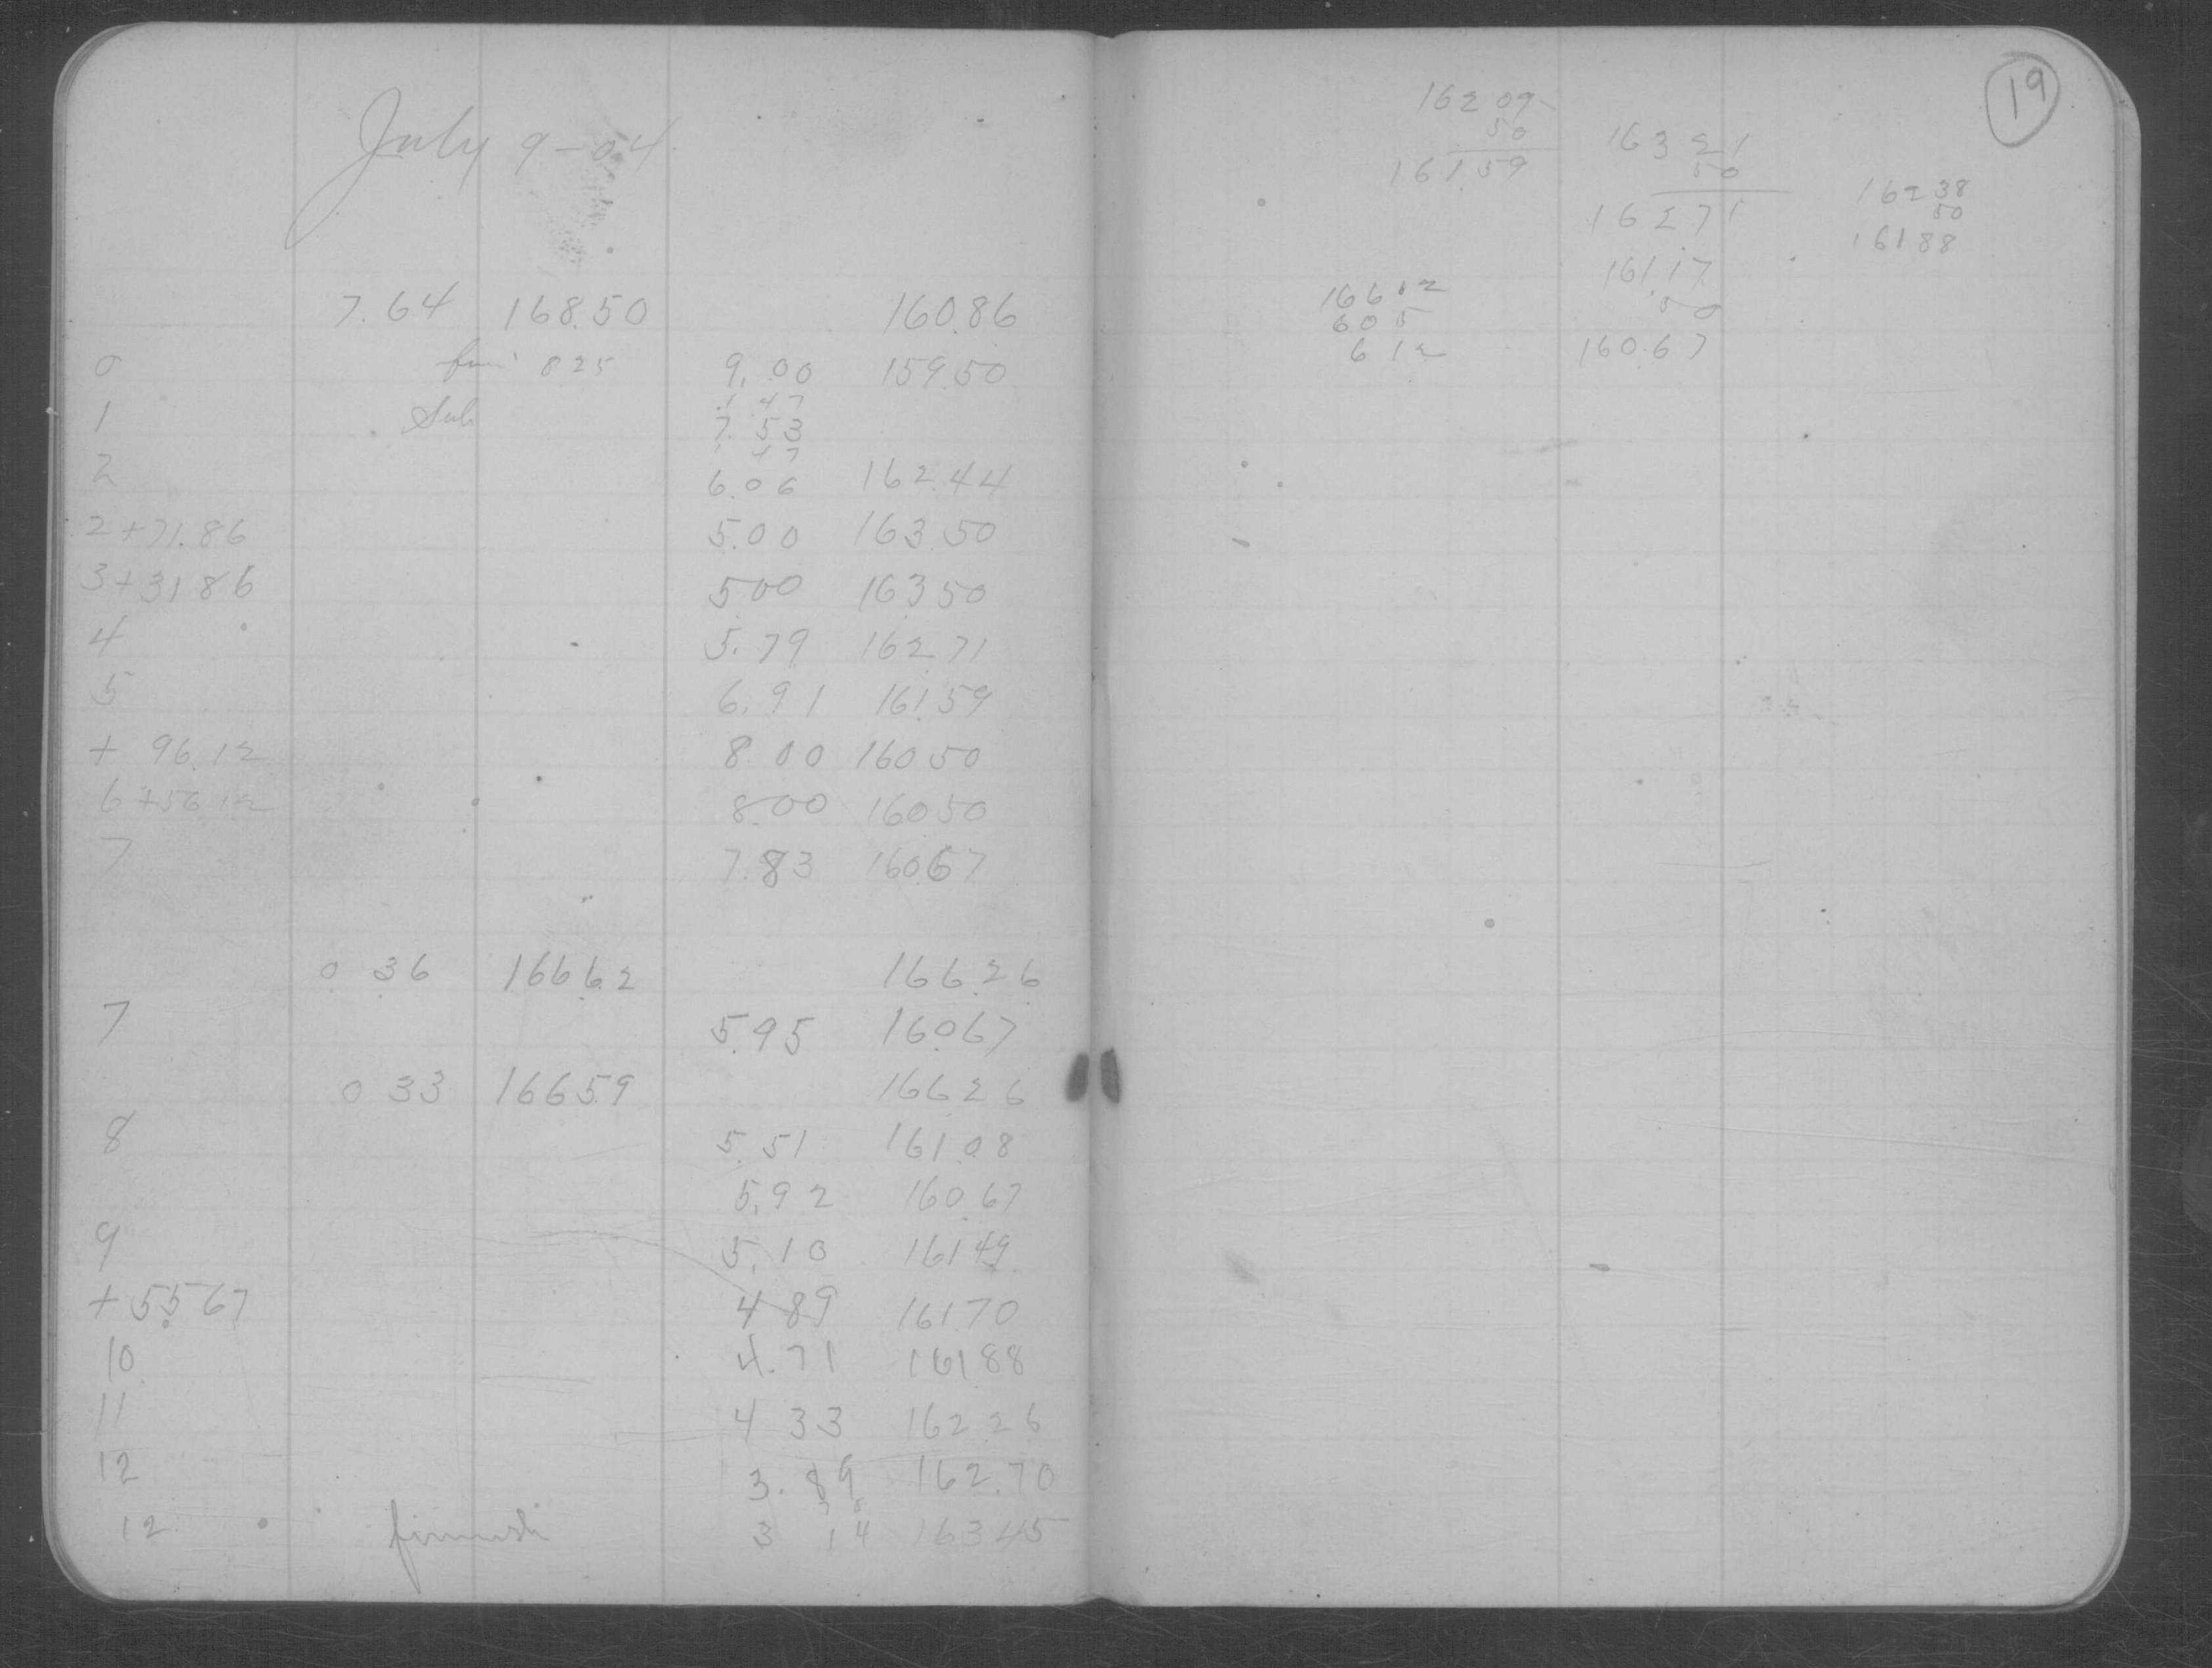 July 9-04
7.64 168.50 160.86
0 825 9.00 159.50
1 Sub 1 47
7.53
1 47
2 6.06 162.44
2+71.86 5.00 163.50
3+31 86 5 00 163 50
4 5.79 162 71
5 6.91 161.59
+ 96.12 8 00 160 50
6+56 12 8.00 160 50
7 7.83 160.67
0 36 166 62 166.26
7 5.95 160.67
0 33 166 59 166 26
8 5.51 161.08
5.92 160.67
9 5.10 161 49
+ 55 67 4 89 161 70
10 4.71 161 88
11 4 33 162 26
12 3.89 162.70
12 finish 3 14 163 45
19
162 09
50
161.59
163 21
50
162 71
162 38
50
161 88
161.17
50
160.67
166 12
6 05
6 12